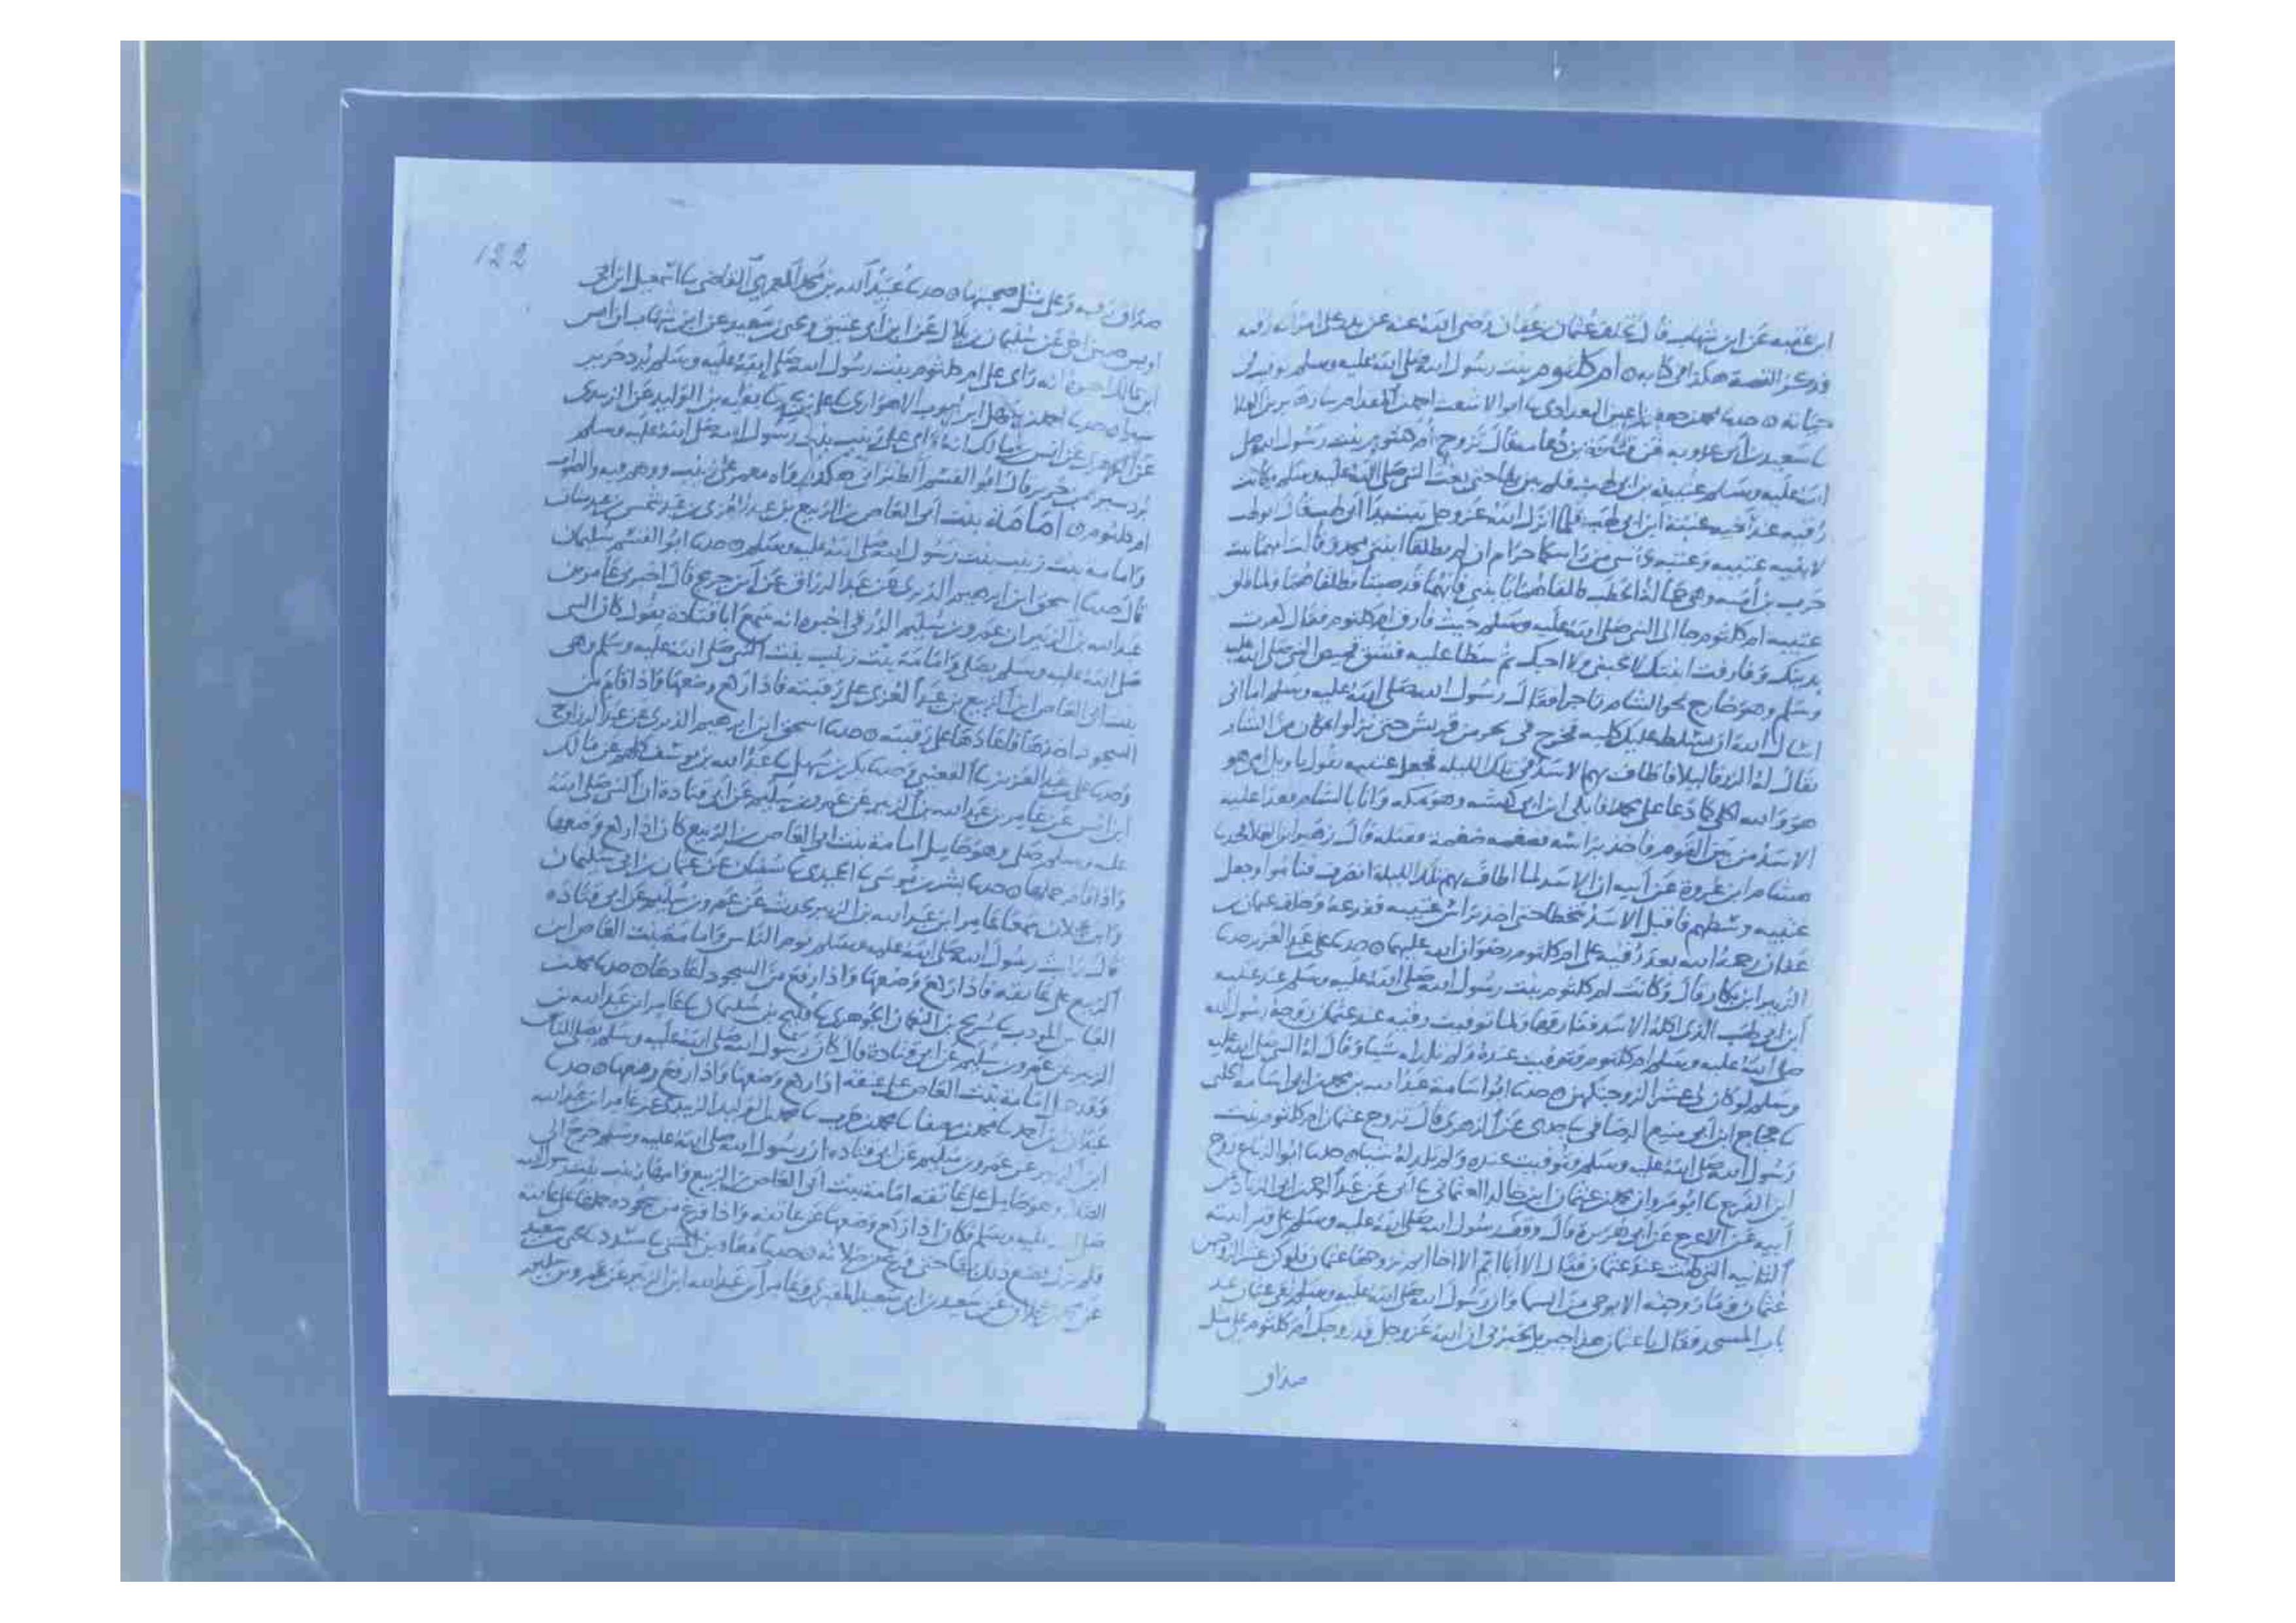 ابن عقبه عن ابن شهاب قال تخلف عثمان بن عفان رضى الله عنه عن بدر على امراته رقيه
وذكر القصة هكذا فى كتابه ام كلثوم بنت رسول الله صلى الله عليه وسلم توفيت فى
حياته حدثنا محمد بن جعفر بن اعين البغدادى ثنا ابو الاشعث احمد بن المقدام ثنا زهير بن العلا
ثنا سعيد بن ابى عروبه عن قتادة بن دعامه قال تزوج ام كلثوم بنت رسول الله صلى
الله عليه وسلم عتيبه بن ابى لهب فلم يبن بها حتى بعث النبى صلى الله عليه وسلم وكانت
رقيه عند اخيه عتبة ابن ابى لهب فلما انزل الله عز وجل تبت يدا ابى لهب قال ابو لهب
لابنيه عتيبه وعتبه راسى من راسكما حرام ان لم تطلقا ابنتى محمد وقالت امهما بنت
حرب بن اميه وهى حمالة الحطب طلقاهما يا بنى فانهما قد صبتا فطلقاهما ولما طلق
عتيبه ام كلثوم جا الى النبى صلى الله عليه وسلم حيث فارق ام كلثوم فقال كفرت
بدينك وفارقت ابنتك لا تحبنى ولا احبك ثم سطا عليه فشق قميص النبى صلى الله عليه
وسلم وهو خارج نحو الشام تاجرا فقال رسول الله صلى الله عليه وسلم اما انى
اسال الله ان يسلط عليك كلبه فخرج فى نفر من قريش حتى نزلوا مكان من الشام
يقال له الزرقا ليلا فاطاف بهم الاسد فى تلك الليله فجعل عتيبه يقول يا ويل امى هو
هو والله اكلى كما دعا على محمد قاتلى ابن ابى كبشه وهو بمكه وانا بالشام فعدا عليه
الاسد من بين القوم فاخذ براسه فضغمه ضغمة فقتله قال زهير ابن العلا فحدثنا
هشام ابن عروة عن ابيه ان الاسد لما اطاف بهم تلك الليلة انصرف فناموا وجعل
عتيبه وسطهم فاقبل الاسد يتخطاهم حتى اخذ براس عتيبه ففدغه وخلف عثمان بن
عفان رحمة الله بعد رقيه على ام كلثوم رضوان الله عليهما حدثنا على بن عبد العزيز حدثنا
الزبير ابن بكار قال وكانت ام كلثوم بنت رسول الله صلى الله عليه وسلم عند عتيبه
ابن ابى لهب الذى اكله الاسد ففارقها ولما توفيت رقيه عند عثمان زوجة رسول الله
صلى الله عليه وسلم ام كلثوم فتوفيت عندة ولم تلد له شيا وقال له النبى صلى الله عليه
وسلم لو كان لى عشرا لزوجتكهن حدثنا ابو اسامة عبد الله بن محمد بن ابى اسامه الحلبى
ثنا حجاج ابن ابى منيع الرصافى ثنا جدى عن الزهرى قال تزوج عثمان ام كلثوم بنت
رسول الله صلى الله عليه وسلم وتوفيت عنده ولم تلد له شيا حدثنا ابو الزنباع روح
ابن الفرج ثنا ابو مروان محمد بن عثمان ابن خالد العثمانى ثنا ابى عن عبد الرحمن ابن ابى الزناد عن
ابيه عن الاعرج عن ابى هريرة قال وقف رسول الله صلى الله عليه وسلم على قبر ابنته
الثانيه التى كانت عند عثمان فقال الا ابا ايم الا اخا ايم يزوجها عثمان فلو كن عشرا لزوجتهن
عثمان وما زوجته الا بوحى من السما وان رسول الله صلى الله عليه وسلم لقى عثمان عند
باب المسجد فقال يا عثمان هذا جبريل يخبرنى ان الله عز وجل قد زوجك ام كلثوم على مثل
صداق
122
صداق رقيه وعلى مثل صحبتها حدثنا عبيد الله بن محمد العمرى القاضى ثنا اسمعيل ابن ابى
اويس حدثنى اخى عن سليمان بن بلال عن ابن ابى عتيق ويحيى بن سعيد عن ابن شهاب ان انس
ابن مالك اخبره انه راى على ام كلثوم بنت رسول الله صلى الله عليه وسلم برد حرير
سيرا حدثنا احمد بن سهل ابن ايوب الاهوازى ثنا على بن بحر ثنا بقيه بن الوليد عن الزبيدى
عن الزهرى عن انس بن مالك انه راى على زينب بنت رسول الله صلى الله عليه وسلم
برد سيرا من حرير قال ابو القسم الطبرانى هكذا رواه معمر على زينب ووهم فيه والصواب
ام كلثوم امامة بنت ابى العاص بن الربيع بن عبد العزى بن عبد شمس بن عبد مناف
وامامه بنت زينب بنت رسول الله صلى الله عليه وسلم حدثنا ابو القسم سليمان
قال حدثنا اسحق ابن ابرهيم الدبرى عن عبد الرزاق عن ابن جريج قال اخبرنى عامر بن
عبد الله بن الزبير ان عمرو بن سليم الزرقى اخبره انه سمع ابا قتاده يقول كان النبى
صلى الله عليه وسلم يصلى وامامة بنت زينب بنت النبى صلى الله عليه وسلم وهى
بنت ابى العاص ابن الربيع بن عبد العزى على رقبته فاذا ركع وضعها واذا قام من
السجود اخذها فاعادها على رقبته حدثنا اسحق ابن ابرهيم الدبرى عن عبد الرزاق ح
وحدثنا على بن عبد العزيز ثنا القعنبى وحدثنا بكر بن سهل ثنا عبد الله بن يوسف كلهم عن مالك
ابن انس عن عامر بن عبد الله بن الزبير عن عمرو بن سليم عن ابى قتادة ان النبى صلى الله
عليه وسلم صلى وهو حامل امامة بنت ابى العاص بن الربيع كان اذا ركع وضعها
واذا قام حملها حدثنا بشر بن موسى ثنا الحميدى ثنا سفيان عن عثمان بن ابى سليمان
وابن عجلان سمعا عامر ابن عبد الله بن الزبير يحدث عن عمرو بن سليم عن ابى قتاده
قال رايت رسول الله صلى الله عليه وسلم يوم الناس وامامة بنت العاص ابن
الربيع على عاتقه فاذا ركع وضعها واذا رفع من السجود اعادها حدثنا محمد بن
العباس المودب ثنا سريج بن النعمان الجوهرى ثنا فليح بن سليمان ثنا عامر ابن عبد الله بن
الزبير عن عمرو بن سليم عن ابى قتادة قال كان رسول الله صلى الله عليه وسلم يصلى للناس
وقد حمل امامة بنت العاص على عنقه اذا ركع وضعها واذا رفع رفعها حدثنا
عبدان بن احمد ثنا محمد بن مصفا ثنا محمد بن حرب ثنا محمد بن الوليد الزبيدى عن عامر ابن عبد الله
ابن الزبير عن عمرو بن سليم عن ابى قتاده ان رسول الله صلى الله عليه وسلم خرج الى
الصلاة وهو حامل على عاتقه امامة بنت ابى العاص بن الربيع وامها زينب بنت رسول الله
صلى الله عليه وسلم فكان اذا ركع وضعها عن عاتقه واذا فرغ من سجوده حملها على عاتقه
فلم يزل يصنع ذلك بها حتى فرغ من صلاته حدثنا معاذ بن المثنى ثنا مسدد ثنا يحيى بن سعيد
عن محمد بن عجلان عن سعيد بن ابى سعيد المقبرى وعامر ابن عبد الله ابن الزبير عن عمرو بن سليم